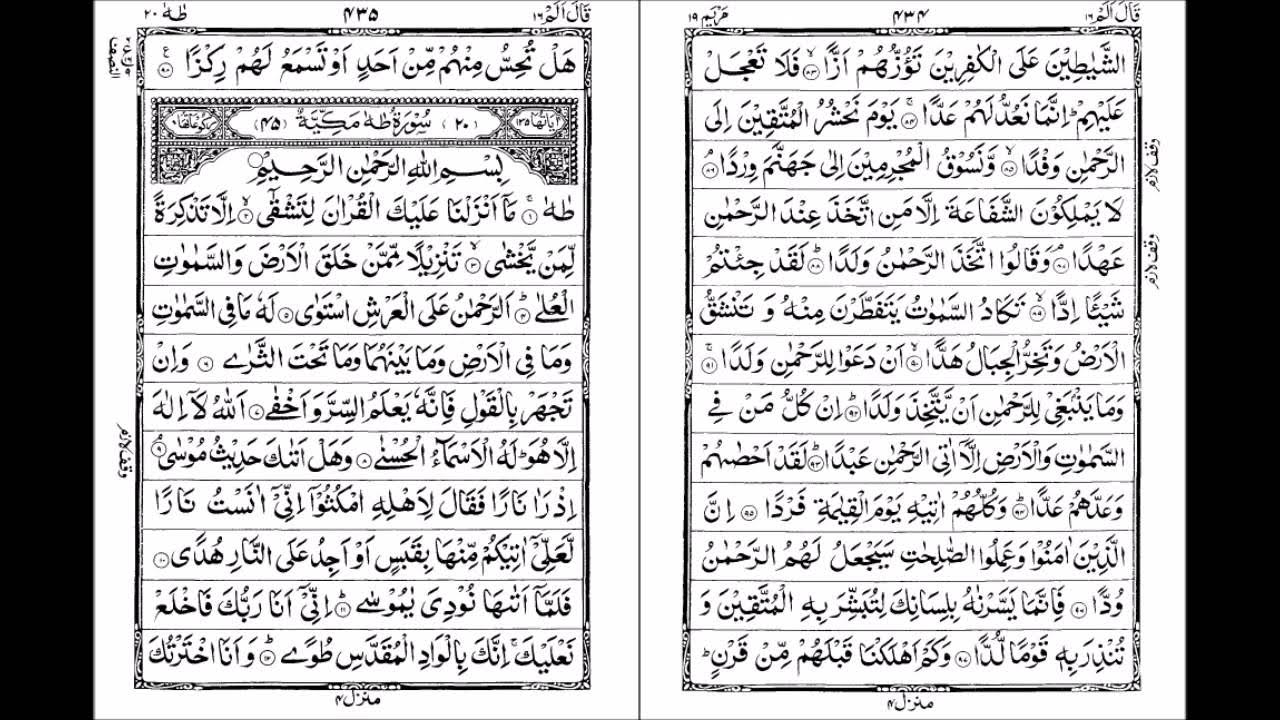 قَالَ اَلَمْ ١٦ ٤٣٤ مَرْيَم ١٩
الشَّيٰطِيْنَ عَلَى الْكٰفِرِيْنَ تَؤُزُّهُمْ اَزًّا ۙ﴿٨٣﴾ فَلَا تَعْجَلْ
عَلَيْهِمْ ؕ اِنَّمَا نَعُدُّ لَهُمْ عَدًّا ۚ﴿٨٤﴾ يَوْمَ نَحْشُرُ الْمُتَّقِيْنَ اِلَى
الرَّحْمٰنِ وَفْدًا ۙ﴿٨٥﴾ وَّنَسُوْقُ الْمُجْرِمِيْنَ اِلٰى جَهَنَّمَ وِرْدًا ۘ﴿٨٦﴾
وقف لازم
لَا يَمْلِكُوْنَ الشَّفَاعَةَ اِلَّا مَنِ اتَّخَذَ عِنْدَ الرَّحْمٰنِ
عَهْدًا ۘ﴿٨٧﴾ وَقَالُوا اتَّخَذَ الرَّحْمٰنُ وَلَدًا ؕ﴿٨٨﴾ لَقَدْ جِئْتُمْ
وقف لازم
شَيْـًٔا اِدًّا ۙ﴿٨٩﴾ تَكَادُ السَّمٰوٰتُ يَتَفَطَّرْنَ مِنْهُ وَ تَنْشَقُّ
الْاَرْضُ وَتَخِرُّ الْجِبَالُ هَدًّا ۙ﴿٩٠﴾ اَنْ دَعَوْا لِلرَّحْمٰنِ وَلَدًا ۚ﴿٩١﴾
وَمَا يَنْۢبَغِيْ لِلرَّحْمٰنِ اَنْ يَّتَّخِذَ وَلَدًا ؕ﴿٩٢﴾ اِنْ كُلُّ مَنْ فِي
السَّمٰوٰتِ وَالْاَرْضِ اِلَّاۤ اٰتِي الرَّحْمٰنِ عَبْدًا ؕ﴿٩٣﴾ لَقَدْ اَحْصٰىهُمْ
وَعَدَّهُمْ عَدًّا ؕ﴿٩٤﴾ وَكُلُّهُمْ اٰتِيْهِ يَوْمَ الْقِيٰمَةِ فَرْدًا ﴿٩٥﴾ اِنَّ
الَّذِيْنَ اٰمَنُوْا وَعَمِلُوا الصّٰلِحٰتِ سَيَجْعَلُ لَهُمُ الرَّحْمٰنُ
وُدًّا ﴿٩٦﴾ فَاِنَّمَا يَسَّرْنٰهُ بِلِسَانِكَ لِتُبَشِّرَ بِهِ الْمُتَّقِيْنَ وَ
تُنْذِرَ بِهٖ قَوْمًا لُّدًّا ﴿٩٧﴾ وَكَمْ اَهْلَكْنَا قَبْلَهُمْ مِّنْ قَرْنٍ ؕ
منزل ٤
قَالَ اَلَمْ ١٦ ٤٣٥ طٰهٰ ٢٠
هَلْ تُحِسُّ مِنْهُمْ مِّنْ اَحَدٍ اَوْ تَسْمَعُ لَهُمْ رِكْزًا ﴿٩٨﴾
اٰيَاتُهَا ١٣٥ (٢٠) سُوْرَةُ طٰهٰ مَكِّيَّةٌ (٤٥) رُكُوْعَاتُهَا ٨
بِسْمِ اللّٰهِ الرَّحْمٰنِ الرَّحِيْمِ
طٰهٰ ۚ﴿١﴾ مَاۤ اَنْزَلْنَا عَلَيْكَ الْقُرْاٰنَ لِتَشْقٰٓى ۙ﴿٢﴾ اِلَّا تَذْكِرَةً
لِّمَنْ يَّخْشٰى ۙ﴿٣﴾ تَنْزِيْلًا مِّمَّنْ خَلَقَ الْاَرْضَ وَالسَّمٰوٰتِ
الْعُلٰى ؕ﴿٤﴾ اَلرَّحْمٰنُ عَلَى الْعَرْشِ اسْتَوٰى ﴿٥﴾ لَهٗ مَا فِي السَّمٰوٰتِ
وَمَا فِي الْاَرْضِ وَمَا بَيْنَهُمَا وَمَا تَحْتَ الثَّرٰى ﴿٦﴾ وَاِنْ
تَجْهَرْ بِالْقَوْلِ فَاِنَّهٗ يَعْلَمُ السِّرَّ وَاَخْفٰى ﴿٧﴾ اَللّٰهُ لَاۤ اِلٰهَ
اِلَّا هُوَ ؕ لَهُ الْاَسْمَآءُ الْحُسْنٰى ﴿٨﴾ وَهَلْ اَتٰىكَ حَدِيْثُ مُوْسٰى ۘ﴿٩﴾
وقف لازم
اِذْ رَاٰ نَارًا فَقَالَ لِاَهْلِهِ امْكُثُوْۤا اِنِّيْۤ اٰنَسْتُ نَارًا
لَّعَلِّيْۤ اٰتِيْكُمْ مِّنْهَا بِقَبَسٍ اَوْ اَجِدُ عَلَى النَّارِ هُدًى ﴿١٠﴾
فَلَمَّاۤ اَتٰىهَا نُوْدِيَ يٰمُوْسٰى ؕ﴿١١﴾ اِنِّيْۤ اَنَا رَبُّكَ فَاخْلَعْ
نَعْلَيْكَ ۚ اِنَّكَ بِالْوَادِ الْمُقَدَّسِ طُوًى ؕ﴿١٢﴾ وَاَنَا اخْتَرْتُكَ
منزل ٤